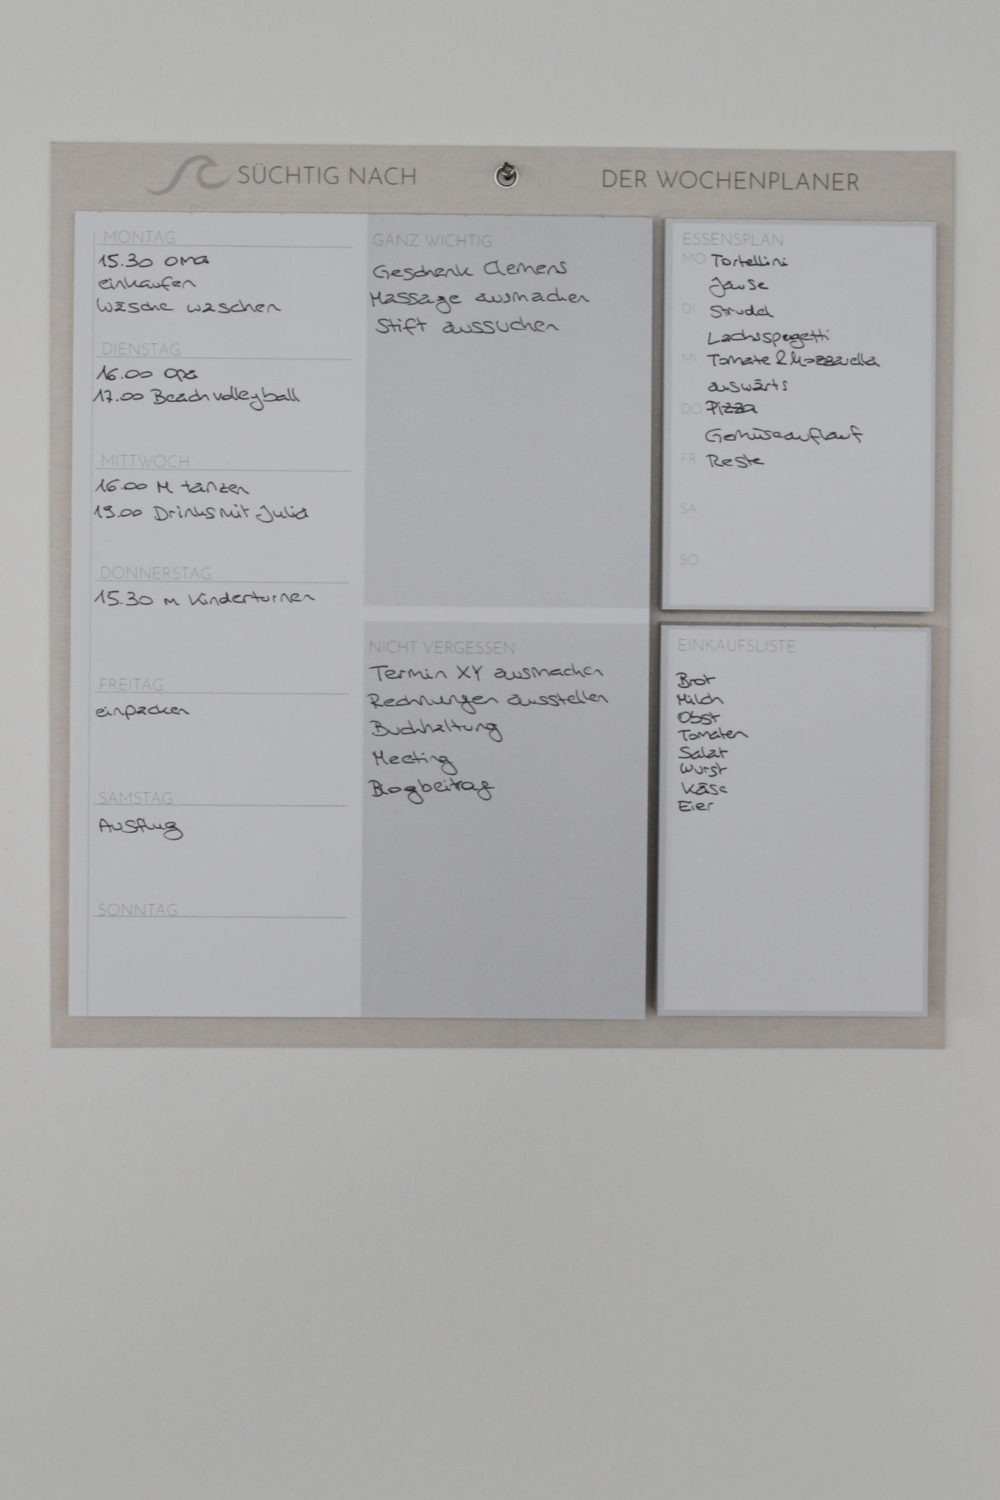 SÜCHTIG NACH
DER WOCHENPLANER
MONTAG
15.30 Oma
einkaufen
Wäsche waschen
DIENSTAG
16.00 Opa
17.00 Beachvolleyball
MITTWOCH
16.00 M tanzen
19.00 Drinks mit Julia
DONNERSTAG
15.30 M Kinderturnen
FREITAG
einpacken
SAMSTAG
Ausflug
SONNTAG
GANZ WICHTIG
Geschenk Clemens
Massage ausmachen
Stift aussuchen
NICHT VERGESSEN
Termin XY ausmachen
Rechnungen ausstellen
Buchhaltung
Meeting
Blogbeitrag
ESSENSPLAN
MO Tortellini
Jause
DI Strudel
Lachsspagetti
MI Tomate & Mozzarella
auswärts
DO Pizza
Gemüseauflauf
FR Reste
SA
SO
EINKAUFSLISTE
Brot
Milch
Obst
Tomaten
Salat
Wurst
Käse
Eier